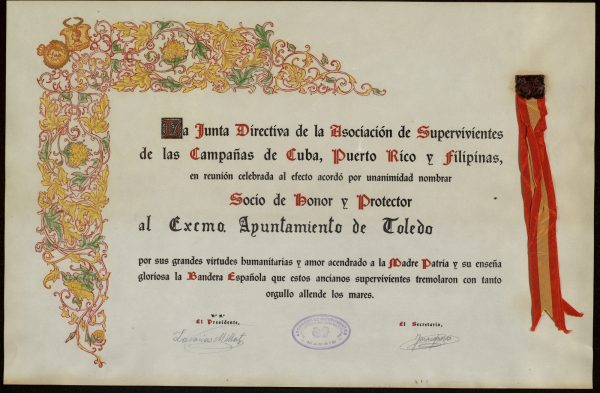 La Junta Directiva de la Asociación de Supervivientes
de las Campañas de Cuba, Puerto Rico y Filipinas,
en reunión celebrada al efecto acordó por unanimidad nombrar
Socio de Honor y Protector
al Excmo. Ayuntamiento de Toledo
por sus grandes virtudes humanitarias y amor acendrado a la Madre Patria y su enseña
gloriosa la Bandera Española que estos ancianos supervivientes tremolaron con tanto
orgullo allende los mares.
Vº Bº
El Presidente,
El Secretario,
MADRID